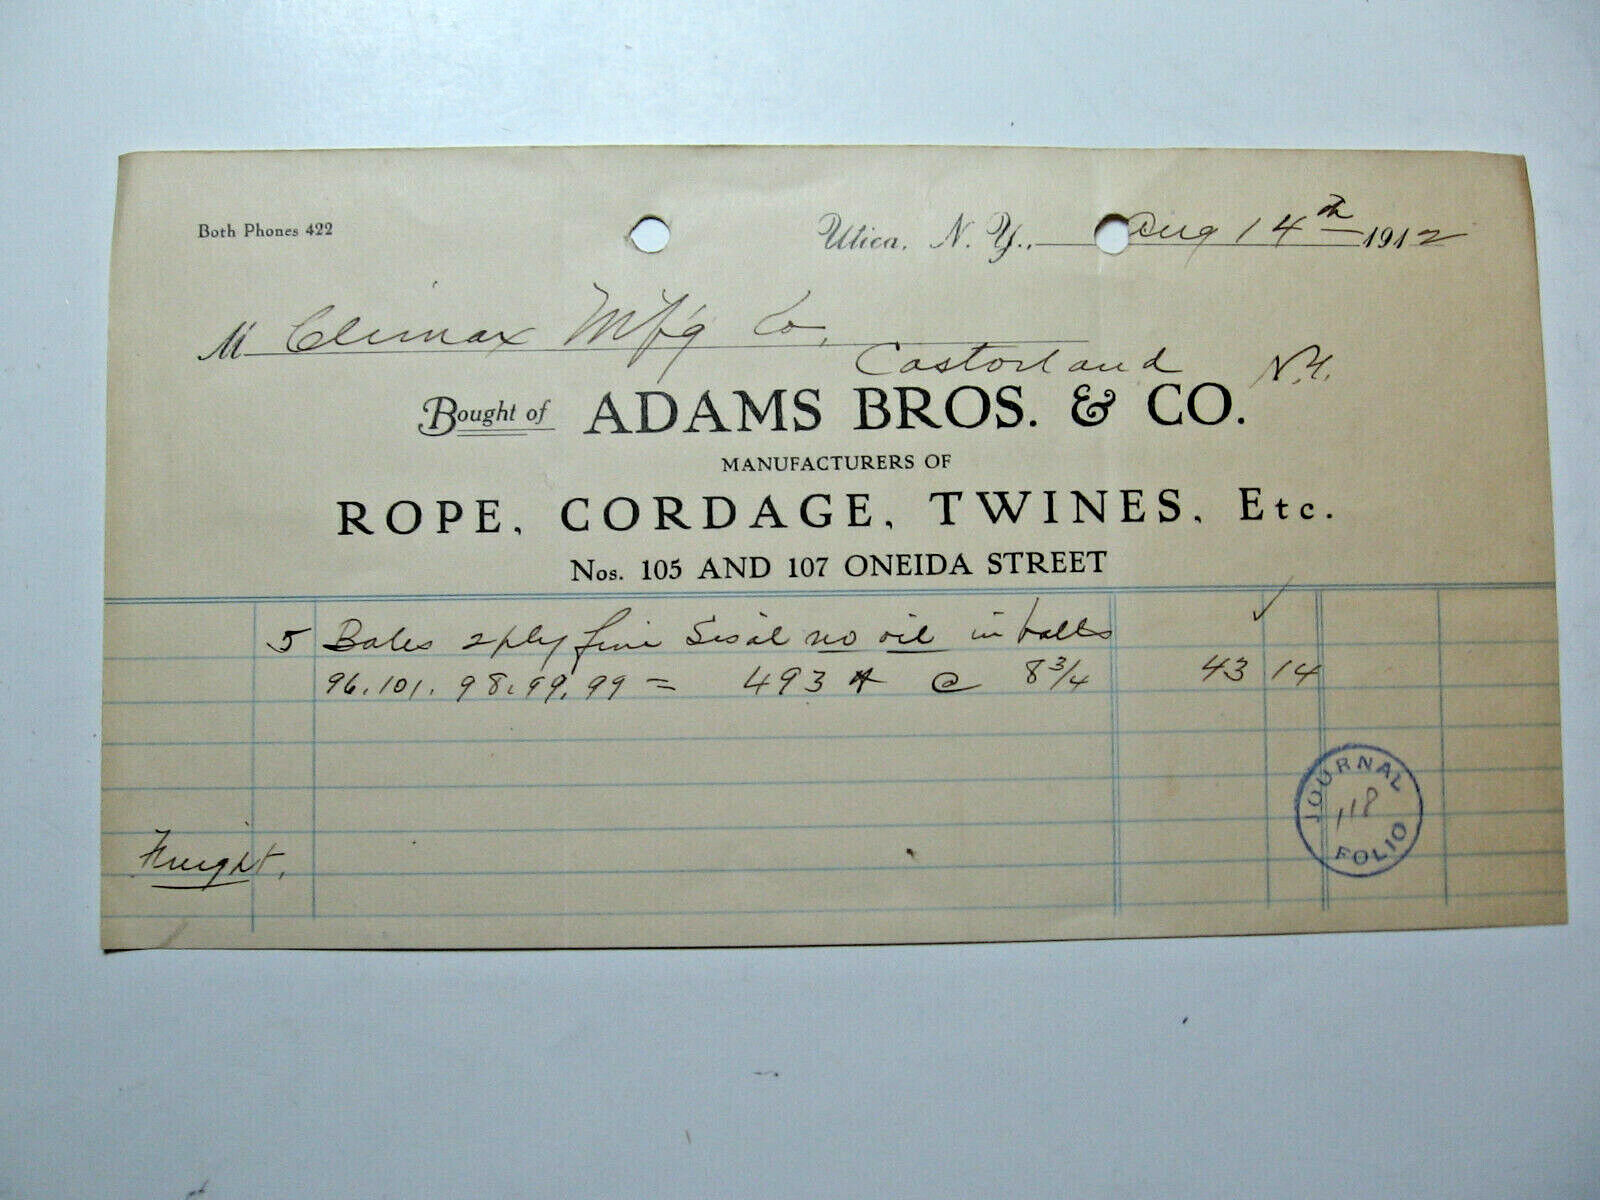 Both Phones 422
Utica, N. Y., Aug 14th 1912
M Climax Mf'g Co,
Castorland N.Y.
Bought of ADAMS BROS. & CO.
MANUFACTURERS OF
ROPE, CORDAGE, TWINES, Etc.
Nos. 105 AND 107 ONEIDA STREET
5 Bales 2 ply fine Sisal no oil in balls
96. 101. 98. 99. 99 = 493 # @ 8 3/4 43 14
JOURNAL
118
FOLIO
Freight.